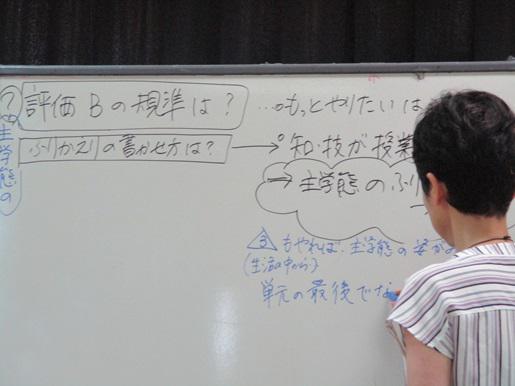 ?
主学態の
評価Bの規準は?
ふりかえりの書かせ方は?
…もっとやりたいは
知・技が授業
⇒ 主学態のふり
もやれば、主学態の姿が
(生活の中から)
単元の最後でな